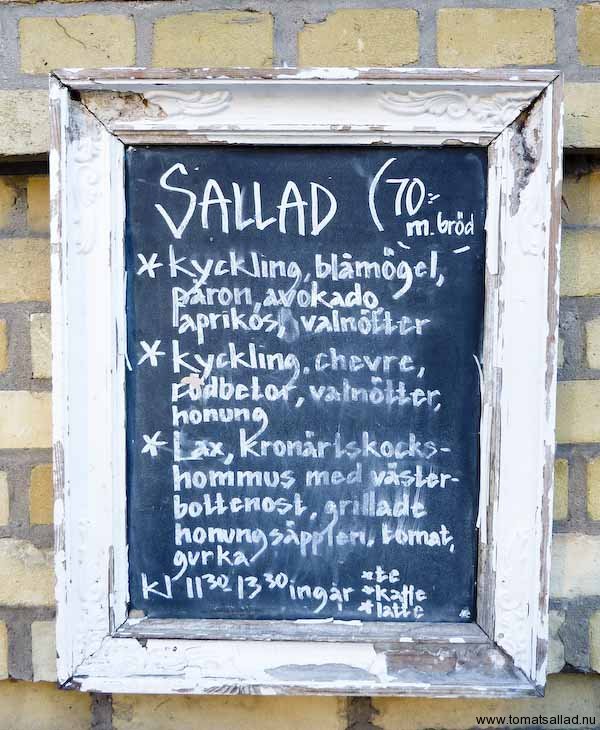 SALLAD (70:-
m. bröd
* kyckling, blåmögel,
päron, avokado
aprikos, valnötter
* kyckling, chevre,
rödbetor, valnötter,
honung
* Lax, kronärtskocks-
hommus med väster-
bottenost, grillade
honungsäpplen, tomat,
gurka
kl 11³⁰ 13³⁰ ingår *te
*kaffe
*latte
www.tomatsallad.nu